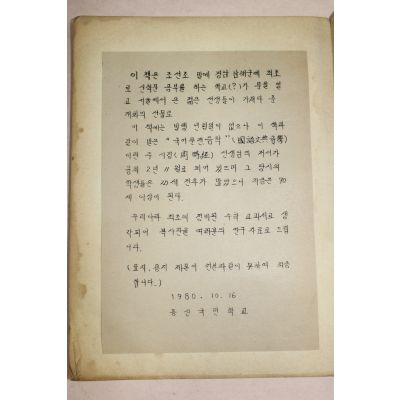 이 책은 조선조 말에 경남 남해군에 최초
로 신학문 공부를 하는 학교(?)가 문을 열
고 서울에서 온 젊은 선생들이 가져다 준
개화의 선물로
이 책에는 발행 년월일이 없으나 이 책과
같이 받은 "국어문전음학" (國語文典音學)
이란 주시경 (周時經) 선생님의 저서가
융희 2년 11월로 되어 있으며 그 당시의
학생들은 20세 전후가 많았으니 지금은 90
세 이상이 된다.
우리나라 최초의 근대된 수학 교과서로 생
각되어 복사판을 여러분의 연구 자료로 드립
니다.
(표지, 용지 제본이 원본과 같이 못하여 죄송
합니다.)
1980. 10. 16
국민학교